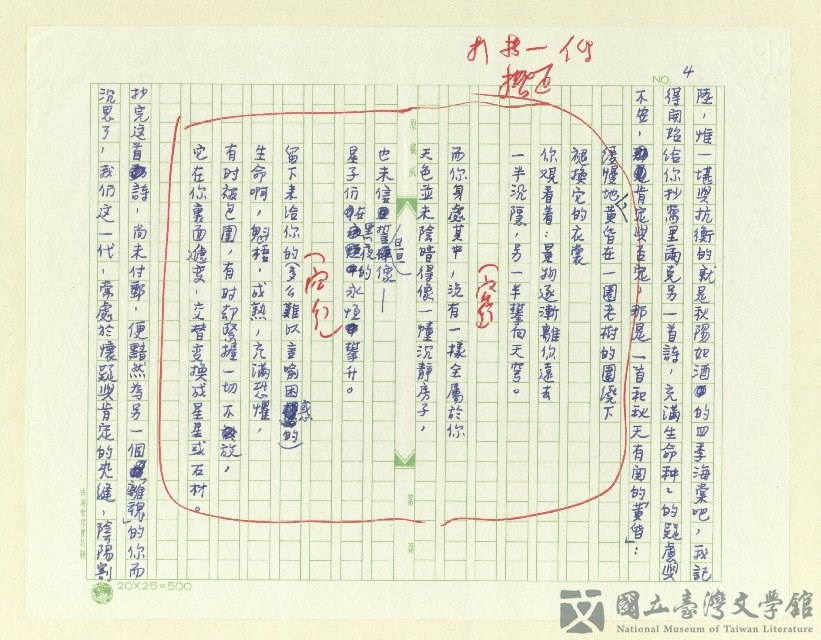 NO. 4
陸，惟一堪與抗衡的就是秋陽如酒的四季海棠吧，我記
得開始給你抄寫里爾克另一首詩，充滿生命種種的疑慮與
不安，肯定與否定，那是一首和秋天有關的「黃昏」：
緩慢地黃昏在一圈老樹的圍繞下
褪換它的衣裳
你觀看着：景物逐漸離你遠去
一半沉隱，另一半攀向天穹。
(空行)
而你身處其中，沒有一樣全屬於你
天色並未陰暗得像一幢沉靜房子，
也未信誓旦旦像一
星子仍在黑夜的永恆攀升。
(空行)
留下來給你的(多么難以言喻困惑的)
生命啊，魁梧，成熟，充滿恐懼，
有時被包圍，有时却緊握一切不放，
它在你裏面遞变，交替变換成星星或石材。
抄完这首詩，尚未付郵，便黯然為另一個「離魂」的你而
沉思了，我们这一代，常處於懷疑與肯定的夾縫，陰陽割
20X25=500
國立臺灣文學館
National Museum of Taiwan Literature